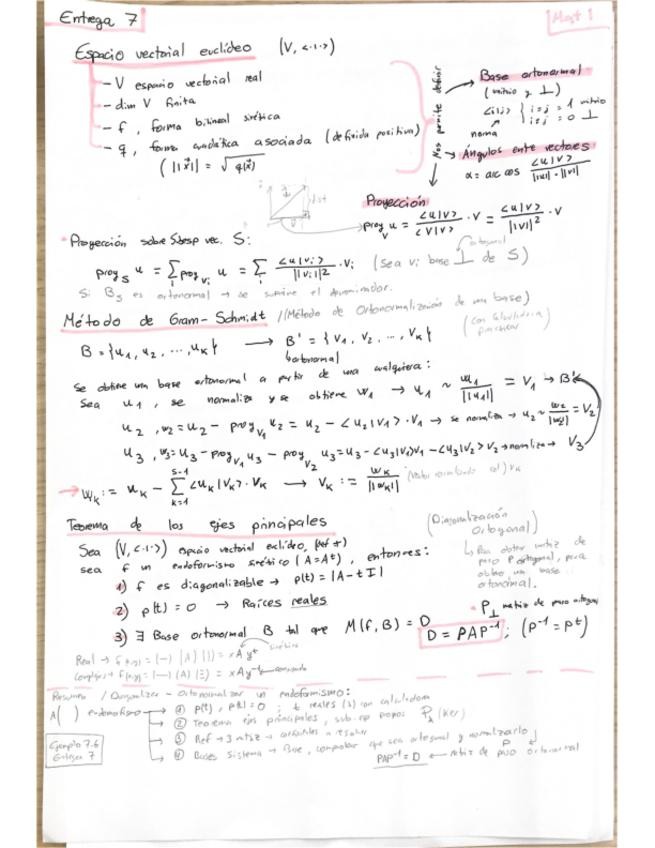 Entrega 7
Mat 1
Espacio vectorial euclídeo (V, <·|·>)
- V espacio vectorial real
- dim V finita
- f, forma bilineal simétrica
- q, forma cuadrática asociada (definida positiva)
( ||x⃗|| = √q(x⃗) )
Nos permite definir
Base ortonormal
(unitario y ⊥)
<i|j> { i=j = 1 unitario
i≠j = 0 ⊥
norma
Ángulos entre vectores
α = arc cos <u|v> / ||u||·||v||
Proyección
proy_v u = <u|v> / <v|v> · v = <u|v> / ||v||² · v
Proyección sobre Sbesp vec. S:
proy_S u = Σ_i proy_vi u = Σ_i <u|vi> / ||vi||² · vi (Sea vi base ⊥ de S)
ortogonal
Si B_S es ortonormal → se suprime el denominador.
Método de Gram-Schmidt //(Método de Ortonormalización de una base)
B = {u1, u2, ..., uk} → B' = {v1, v2, ..., vk}
ortonormal
Se obtiene una base ortonormal a partir de una cualquiera:
Sea u1, se normaliza y se obtiene w1 → u1 ~ w1 / ||u1|| = v1 → B'
u2, w2 = u2 - proy_v1 u2 = u2 - <u2|v1> · v1 → se normaliza → u2 ~ w2 / ||w2|| = v2
u3, w3 = u3 - proy_v1 u3 - proy_v2 u3 = u3 - <u3|v1>v1 - <u3|v2>v2 → normaliza → v3
→ wk := uk - Σ_{k=1}^{s-1} <uk|vk> · vk → vk := wk / ||wk||
Teorema de los ejes principales
(Diagonalización Ortogonal)
Sea (V, <·|·>) espacio vectorial euclídeo,
sea f un endoformismo simétrico (A = Aᵗ), entonces:
1) f es diagonalizable → p(t) = |A - t I|
2) p(t) = 0 → Raíces reales
3) ∃ Base ortonormal B tal que M(f, B) = D
matriz de
paso P ortogonal, para
obtener una base
ortonormal.
P⊥ matriz de paso ortogonal
D = PAP⁻¹; (P⁻¹ = Pᵗ)
simétrica
Resumen / Diagonalizar - Ortonormalizar un endoformismo:
A( ) endomorfismo
① p(t), p(t) = 0; t reales (λ) con calculadora
② Teorema ejes principales, sub. esp propios (Ker)
④ Bases Sistema → Base, comprobar que sea ortogonal y normalizarlo
PAP⁻¹ = D ← matriz de paso ortonormal
Ejemplo 7.6
Entrega 7